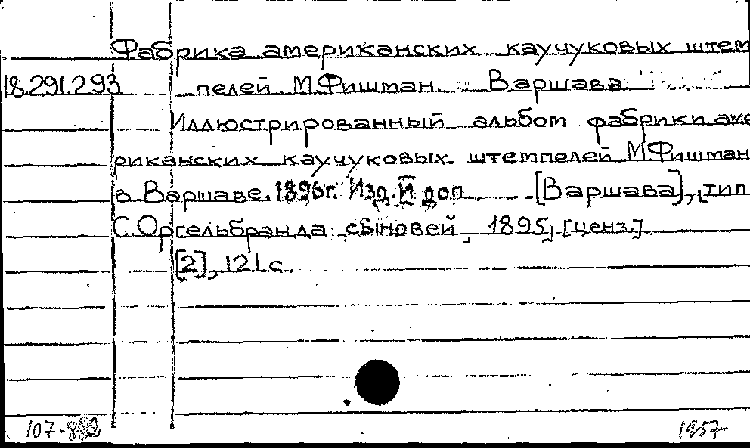 Фабрика американских каучуковых штем
18.291.293 пелей М.Фишман Варшава
Иллюстрированный альбом фабрики аме
риканских каучуковых штемпелей М.Фишман
в Варшаве. 1896г. Изд. II доп [Варшава], тип
С.Оргельбранда сыновей, 1895, [ценз.]
[2], 121 с.
107-8
1957